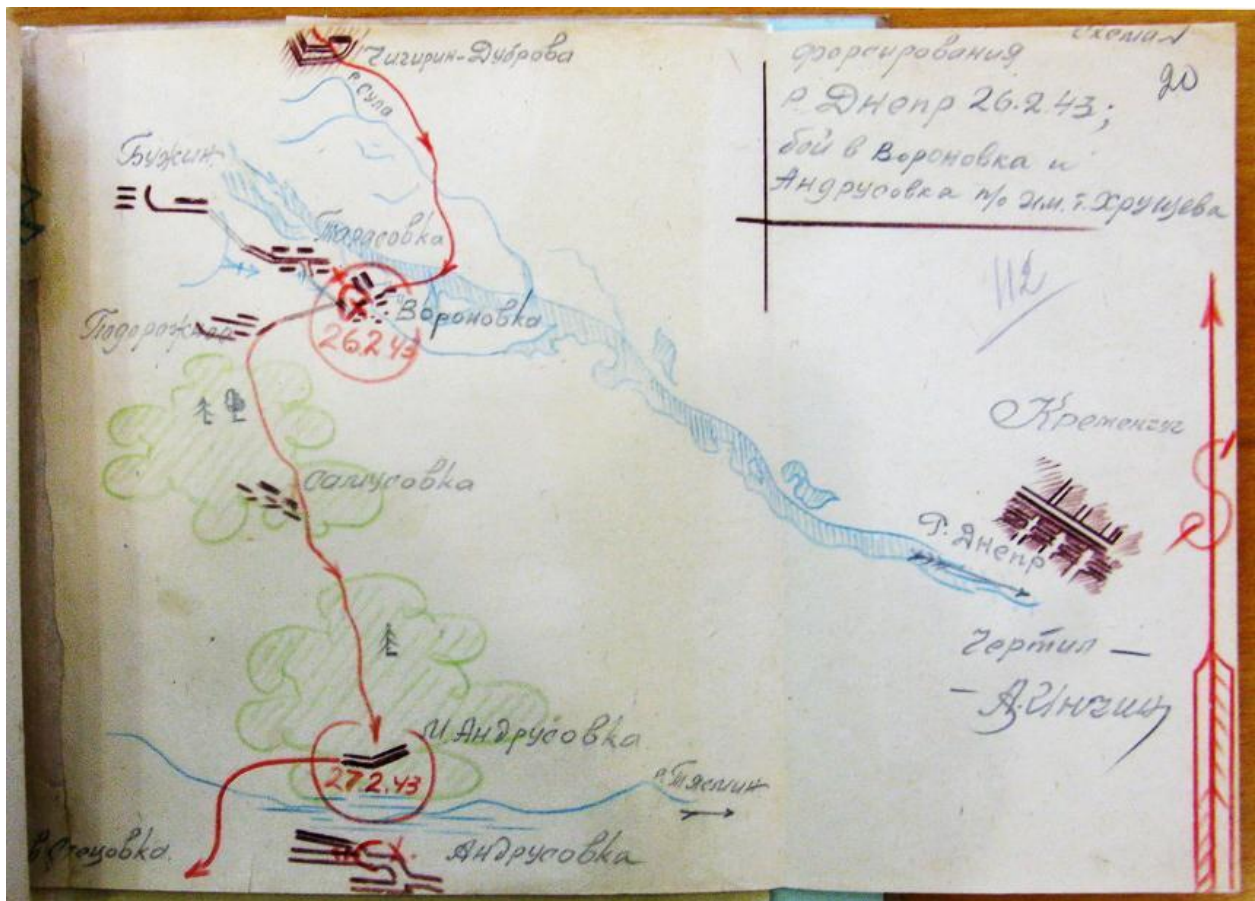 Схема
20
форсирования
р. Днепр 26.2.43;
бой в Вороновка и
Андрусовка п/о им. т. Хрущева
112
Чигирин-Дуброва
р. Сула
Бужин
Тарасовка
Вороновка
26.2.43
Подорожное
Самусовка
Кременчуг
Р. Днепр
Чертил —
— А.
М. Андрусовка
27.2.43
р. Тясмин
в Стецовка
Андрусовка
С